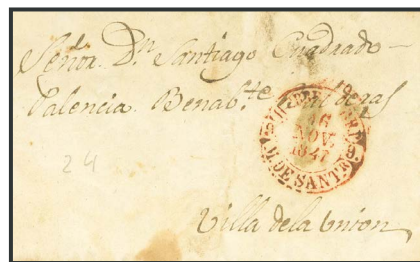 Señor Dn Santiago Cuadrado
Palencia Benabte
16
NOV.
1847
DE SANT
24
Villa de la Union